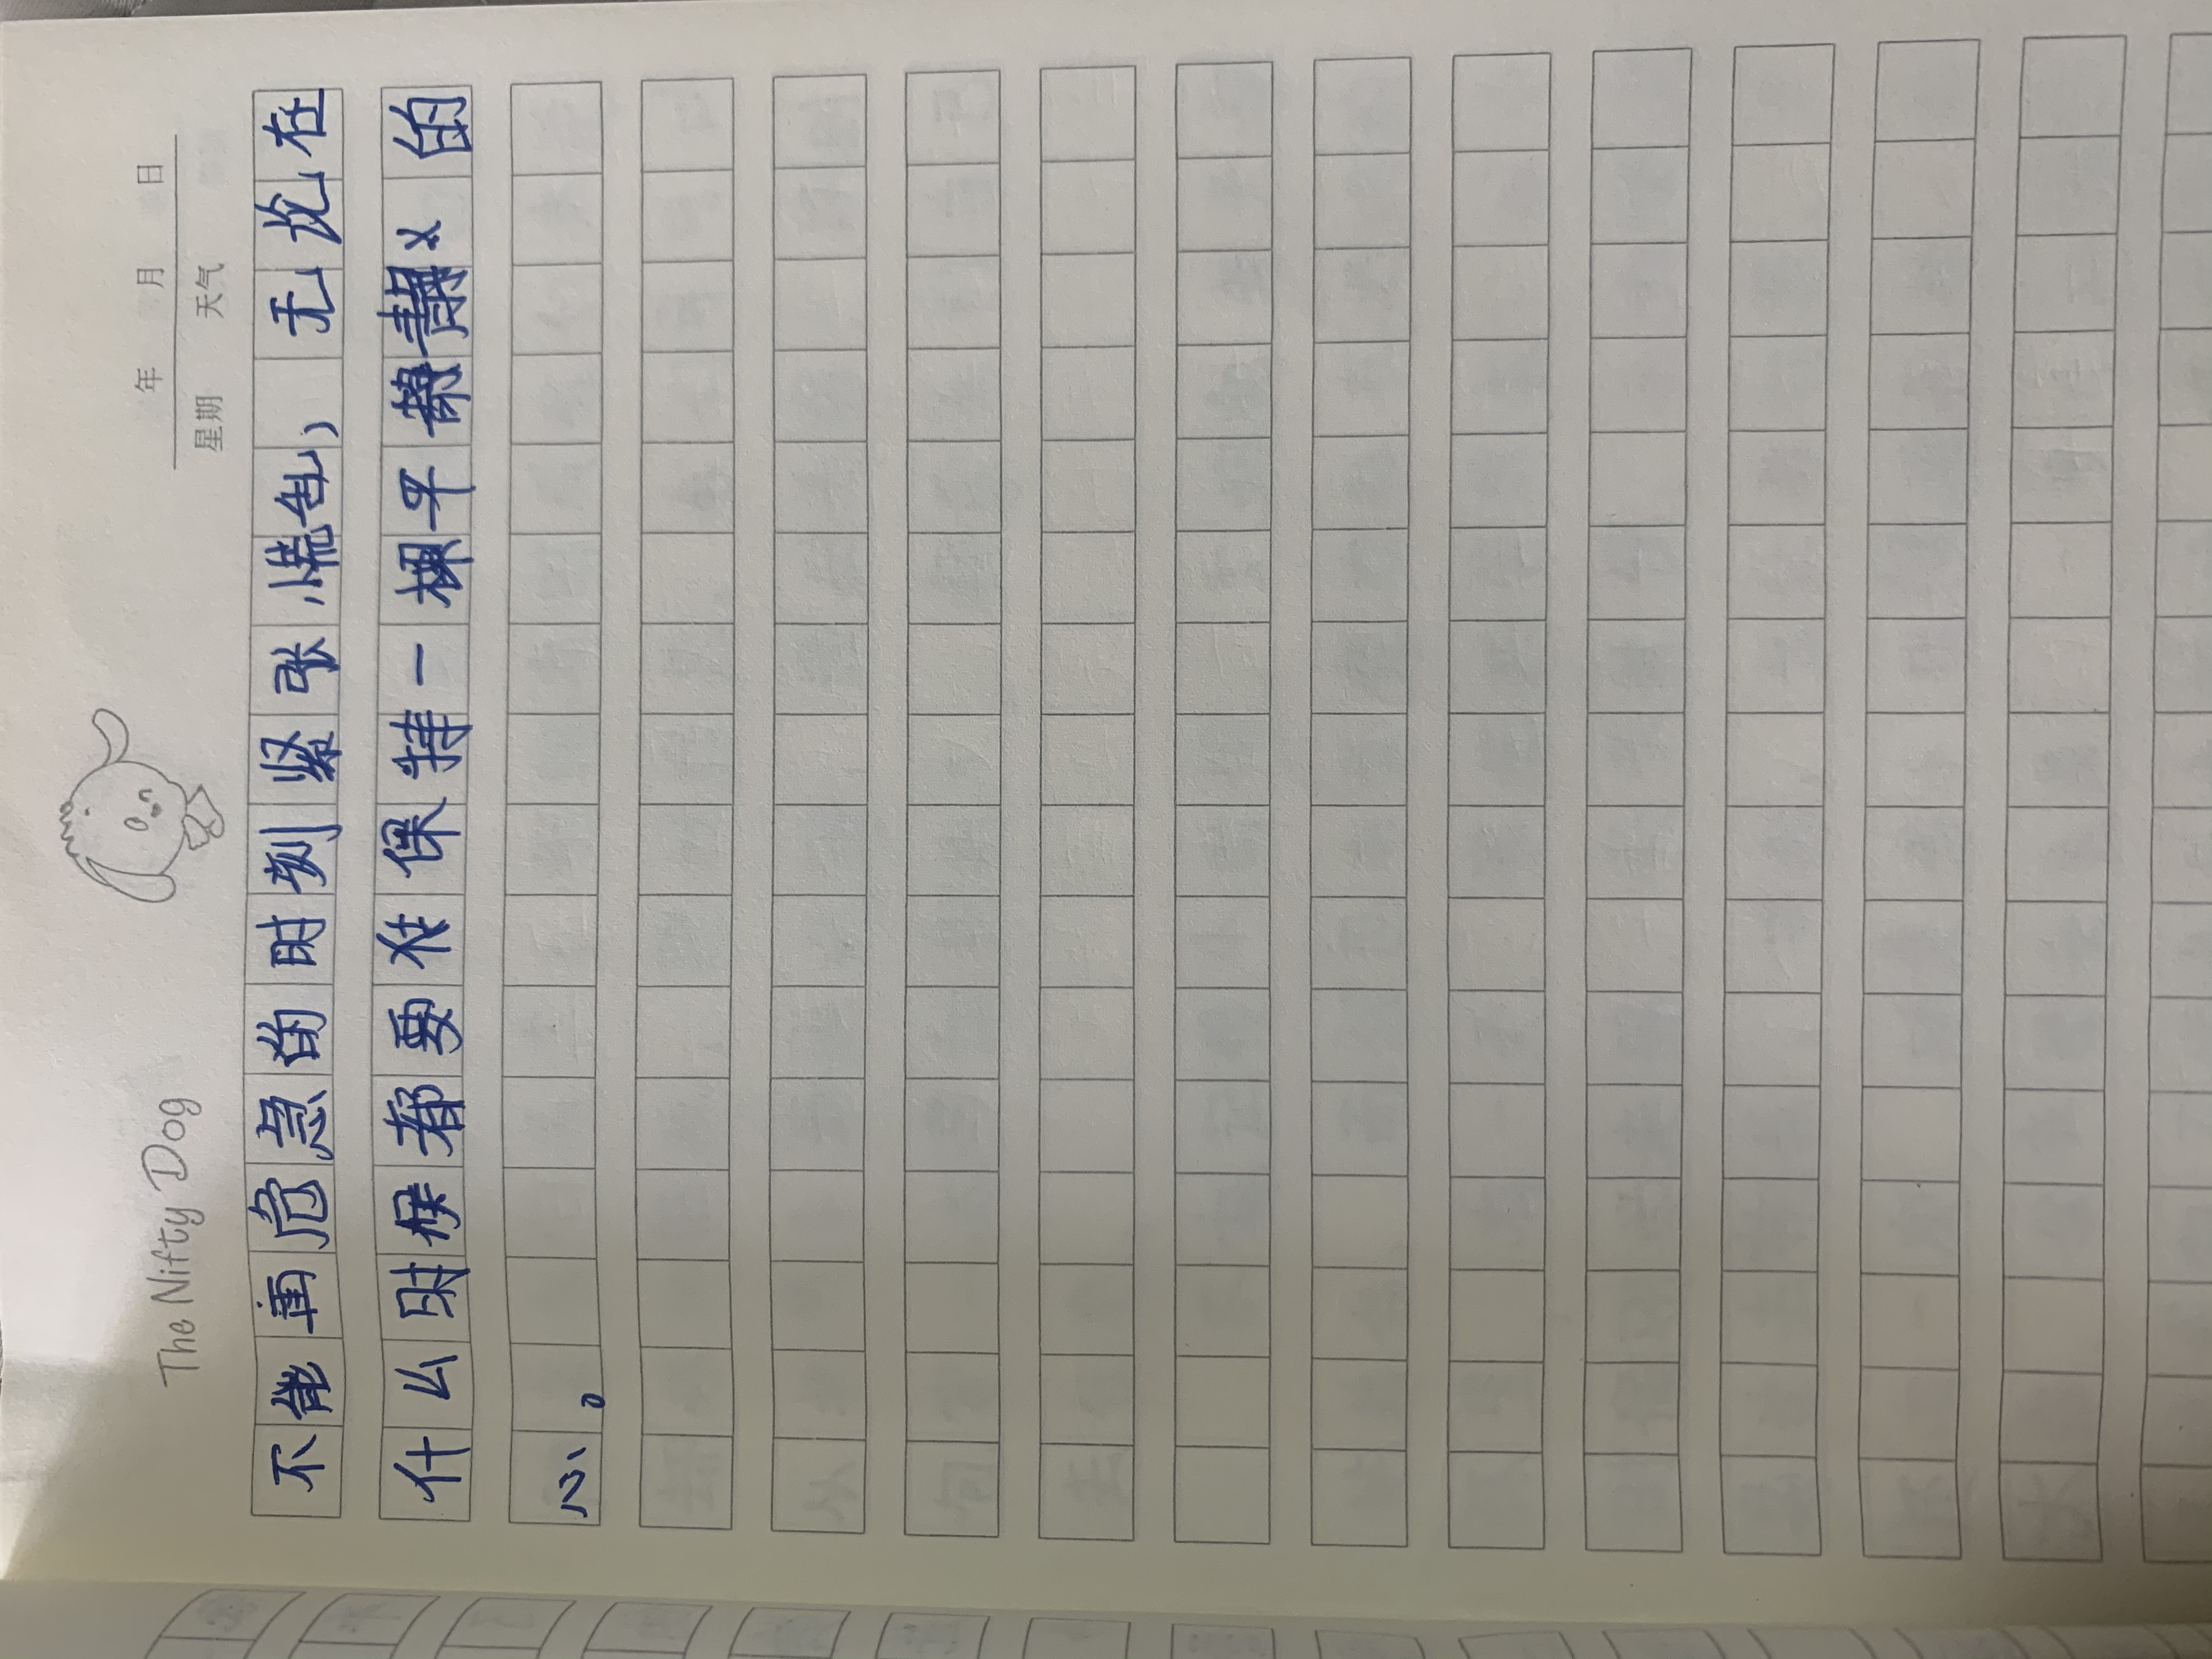 The Nifty Dog
年 月 日
星期 天气
不能再危急的时刻紧张慌乱，无论在
什么时候都要在保持一棵平静的
心。